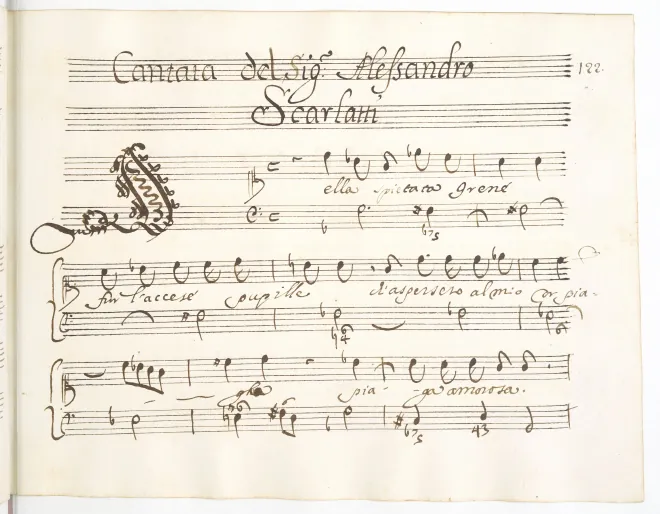 Cantata del Sig.r Alessandro
122.
Scarlatti
ella spietata Irene
fur l'accese pupille d'asperséro al mio cor pia-
gha pia-ga amorosa.